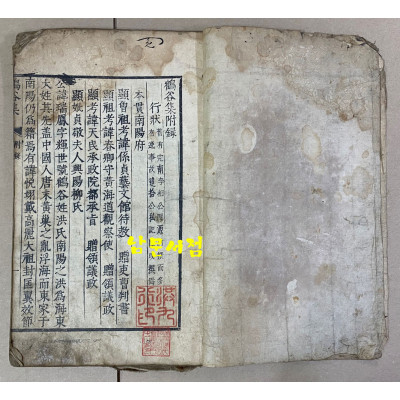 鶴谷集附錄
行狀
本貫南陽府
顯曾祖考諱係貞藝文館待敎 贈吏曹判書
顯祖考諱春卿守黃海道觀察使 贈領議政
顯考諱天民承政院都承旨 贈領議政
顯妣貞敬夫人興陽柳氏
公諱瑞鳳字輝世號鶴谷姓洪氏南陽之洪爲海東
大姓其先盖中國人唐末黃巢之亂浮海而東家子
南陽仍爲籍焉有諱悅翊戴高麗太祖封匡翼效節
鶴谷集 附錄 一
상문서점